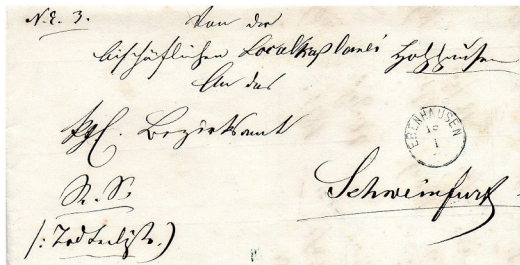 N. E. 3.
Von der
bischöflichen Localkaplanei Holzhausen
An das
Kgl. Bezirksamt
EBENHAUSEN
1
Schweinfurt
R. S.
/: Todtenliste.)